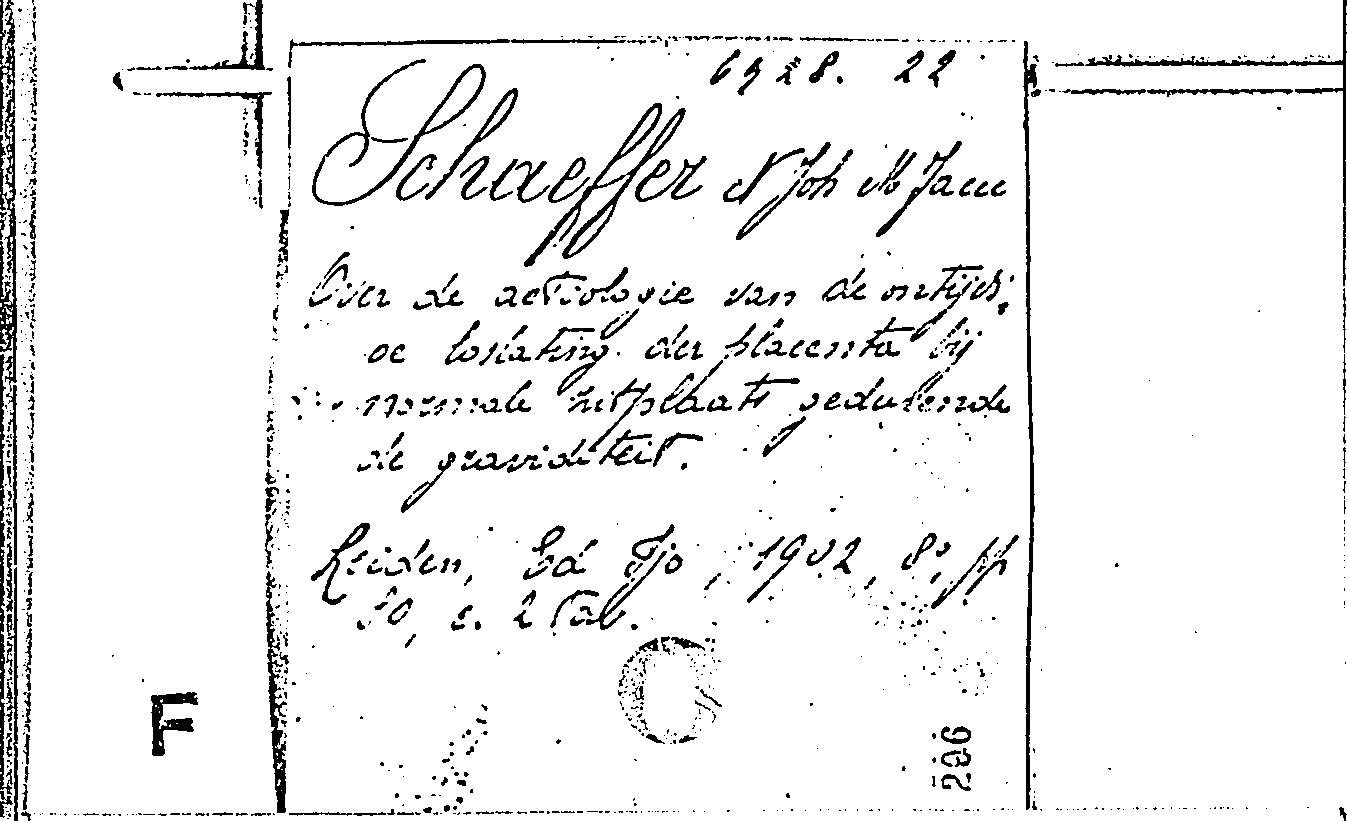 6928. 22
Schaeffer N Joh M Jacu
Over de aetiologie van de ontijdi,
ge loslating der placenta bij
normale zitplaats gedurende
de graviditeit.
Leiden, Ed Ijo, 1902, 8°, pp
50, c. 2 tab.
C
F
296